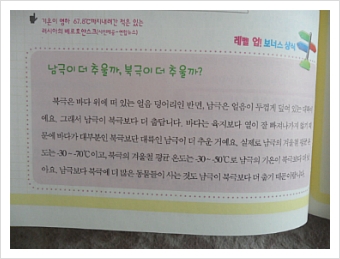 기온이 영하 67.8℃까지 내려간 적은 있는
러시아의 베르호얀스크
레벨 업! 보너스 상식
남극이 더 추울까, 북극이 더 추울까?
북극은 바다 위에 떠 있는 얼음 덩어리인 반면, 남극은 얼음이 두껍게 덮여 있는
에요. 그래서 남극이 북극보다 더 춥답니다. 바다는 육지보다 열이 잘 빠져나가지 않기 때
문에 바다가 대부분인 북극보단 대륙인 남극이 더 추운 거예요. 실제로 남극의 겨울철 평균 온
도는 -30~-70℃이고, 북극의 겨울철 평균 온도는 -30~-50℃로 남극의 기온이 북극보다 더
이요. 남극보다 북극에 더 많은 동물들이 사는 것도 남극이 북극보다 더 춥기 때문이랍니다.